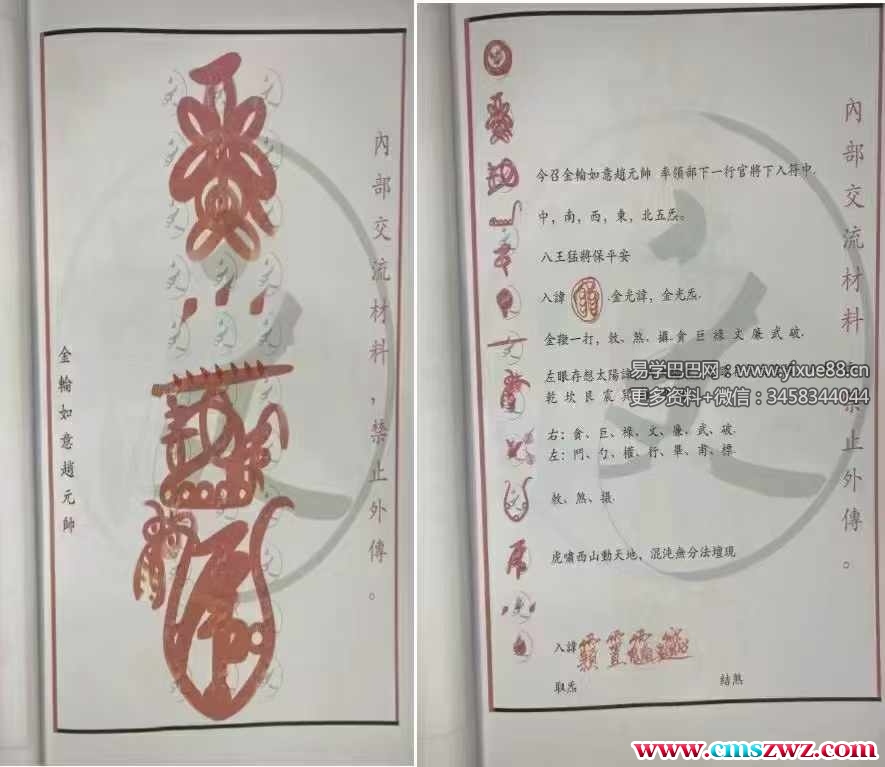 內部交流材料，禁止外傳。
金輪如意趙元帥
內部交流材料
止外傳。
今召金輪如意趙元帥 率領部下一行官將下入符中.
中，南，西，東，北五炁。
八王猛將保平安
入諱 .金光諱，金光炁.
金鞭一打，敕、煞、攝.貪 巨 祿 文 廉 武 破.
左眼存想太陽諱
易学巴巴网：www.yixue88.cn
乾 坎 艮 震
更多资料+微信：3458344044
右：貪、巨、祿、文、廉、武、破.
左：鬥、勺、權、行、畢、甫、標.
敕、煞、摄.
虎嘯西山動天地，混沌無分法壇現
入諱
取炁 結煞
www.cmszwz.com